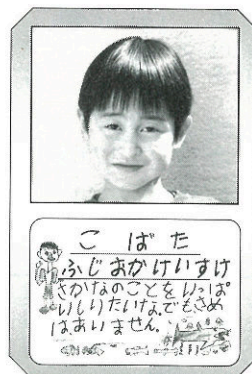 こばた
ふじおかけいすけ
さかなのことをいっぱ
いしりたいな。でもさめ
はあいません。